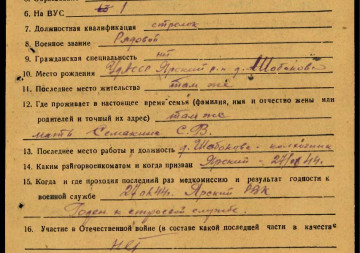 6. На ВУС 1
7. Должностная квалификация стрелок
8. Военное звание Рядовой
9. Гражданская специальность нт
10. Место рождения УдАССР Ярский р-н д.
11. Последнее место жительства там же
12. Где проживает в настоящее время семья (фамилия, имя и отчество жены или
родителей и точный их адрес) там же
мать Семакина С.В.
13. Последнее место работы и должность д. колхозник
14. Каким райгорвоенкоматом и когда призван Ярский - 44г.
15. Когда и где проходил последний раз медкомиссию и результат годности к
военной службе 44г. Ярский РВК
Годен к строевой службе.
16. Участие в Отечественной войне (в составе какой последней части в качеств
нет